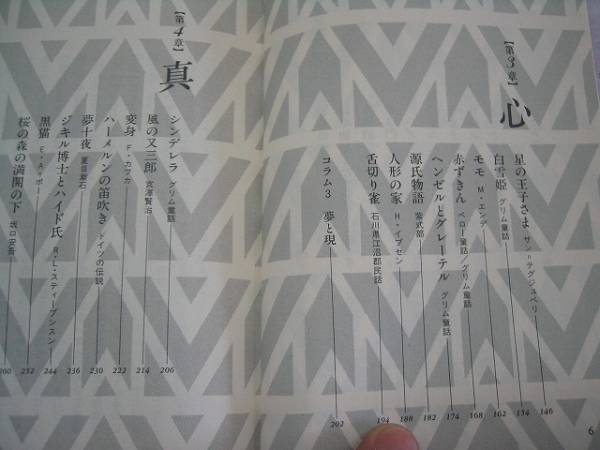 【第3章】
心
星の王子さま サン=テグジュペリ 146
白雪姫 グリム童話 154
モモ M・エンデ 162
赤ずきん ペロー童話/グリム童話 168
ヘンゼルとグレーテル グリム童話 174
源氏物語 紫式部 182
人形の家 H・イプセン 188
舌切り雀 石川県江沼郡民話 194
コラム3 夢と現 202
【第4章】
真
シンデレラ グリム童話 206
風の又三郎 宮澤賢治 214
変身 F・カフカ 222
ハーメルンの笛吹き ドイツの伝説 230
夢十夜 夏目漱石 236
ジキル博士とハイド氏 R・L・スティーブンスン 244
黒猫 E・A・ポー 252
桜の森の満開の下 坂口安吾 260
6